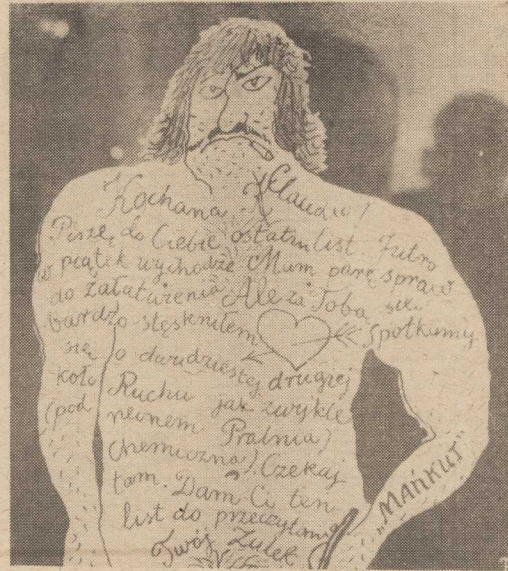 Kochana Claudio!
Piszę do Ciebie ostatni list. Jutro
w piątek wychodzę Mam parę spraw
do załatwienia Ale za Tobą się
bardzo stęskniłem Spotkamy
się o dwudziestej drugiej
koło Ruchu jak zwykle
(pod neonem Pralnia
Chemiczna) Czekaj
tam. Dam Ci ten
list do przeczytania
Twój Lulek
„MAŃKUT"